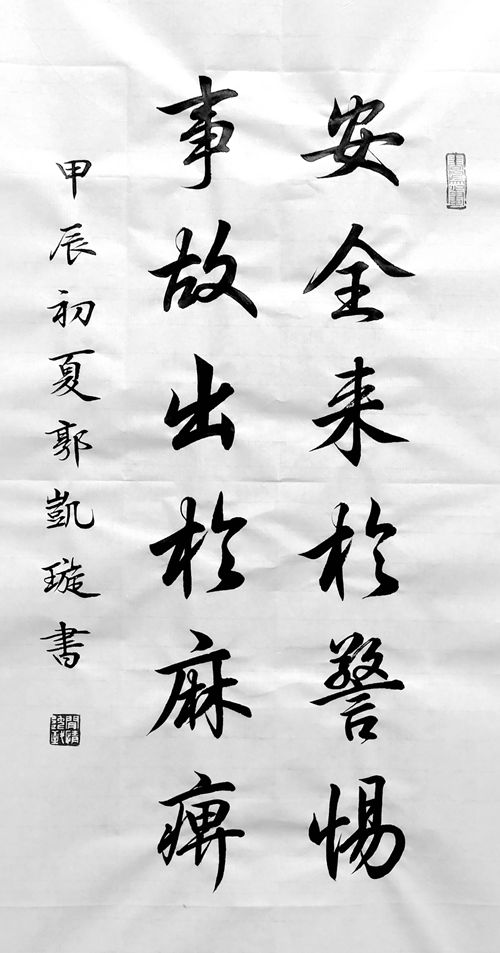 安全来於警惕
事故出於麻痹
甲辰初夏郭凱璇書